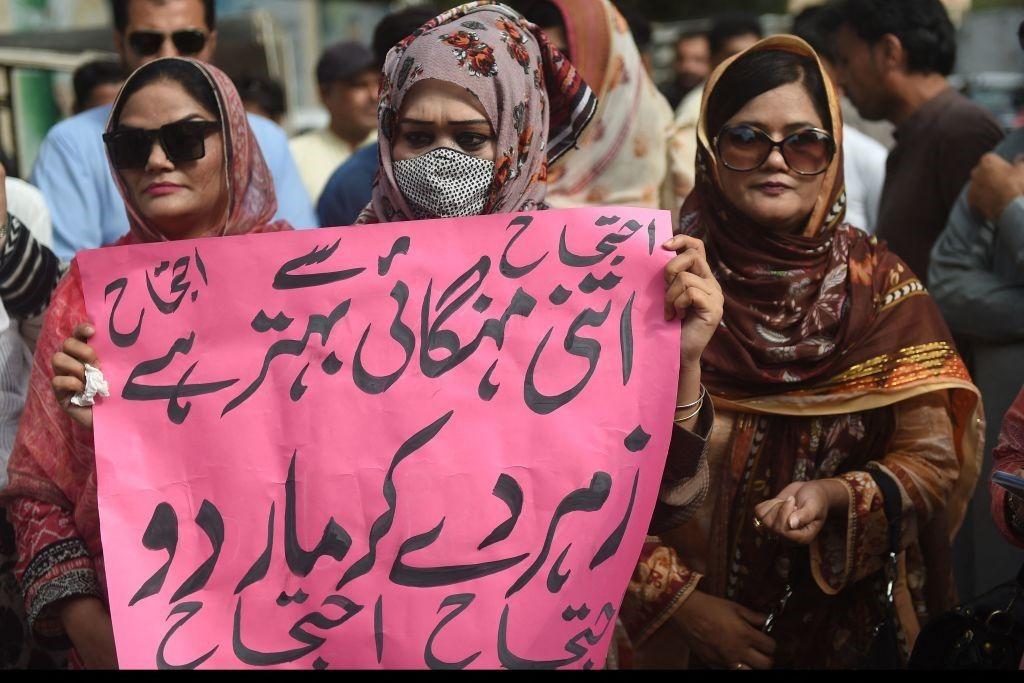 احتجاج احتجاج
اتنی مہنگائی سے بہتر ہے
زہر دے کر مار دو
احتجاج احتجاج